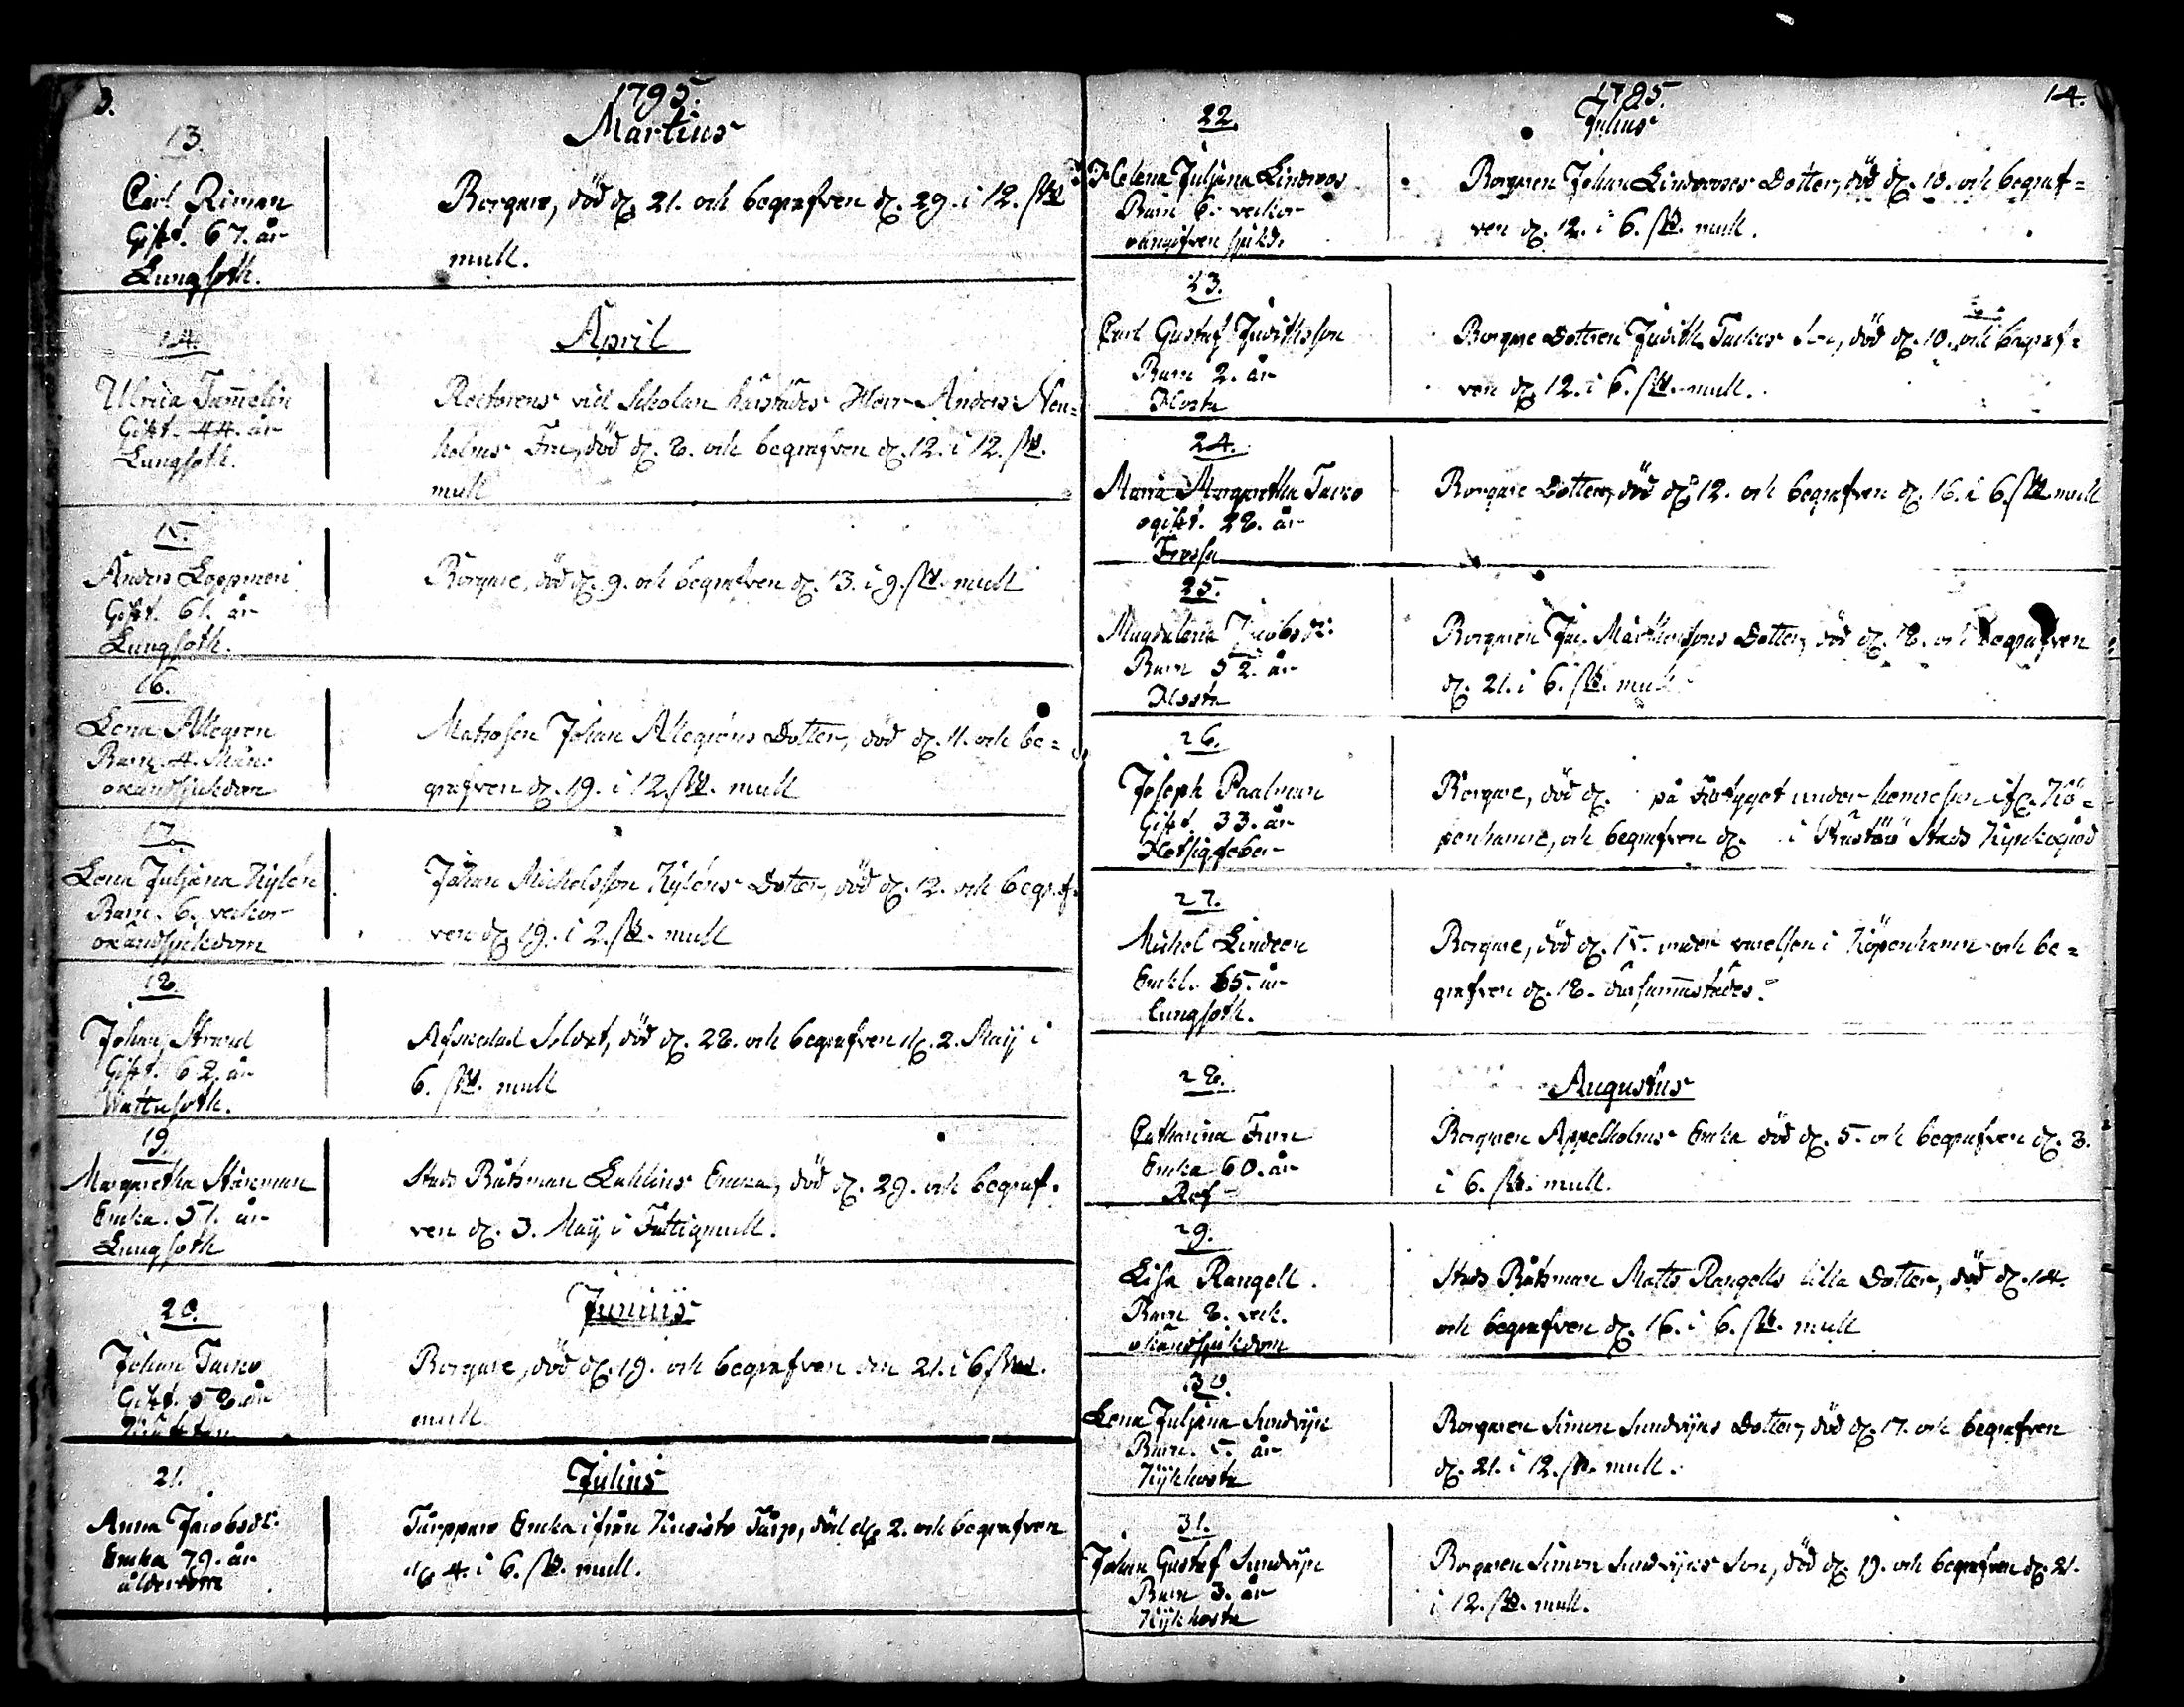 3.
1795.
Martius
13.
Carl Riman
Gift. 67. år
Lungsoth.
Borgare, död d. 21. och begrafven d. 29. i 12. sk
mull.
April
14.
Ulrica Tammelin
Gift. 44. år
Lungsoth.
Rectorens vid Scholan härstädes Herr Anders Nen-
holms Fru, död d. 8. och begrafven d. 12. i 12. sk.
mull
15.
Anders Loppmen
Gift. 61. år
Lungsoth.
Borgare, död d. 9. och begrafven d. 13. i 9. sk. mull
16.
Lena Allegren
Barn 4. Mån.
okändsjukdom
Matrosen Johan Allegrens Dotter, död d. 11. och be-
grafven d. 19. i 12. sk. mull
17.
Lena Juljana Kylén
Barn. 6. veckor
okändsjukdom
Johan Michelsson Kyléns Dotter, död d. 12. och begraf-
ven d. 19. i 2. sk. mull
18.
Johan Strand
Gift. 62. år
Wattusoth.
Afskedad Soldat, död d. 28. och begrafven d. 2. Maij i
6. sk. mull
19.
Margaretha Starman
Enka. 51. år
Lungsoth
Stads Båtsman Lahlins Enka, död d. 29. och begraf-
ven d. 3. Maij i Fattigmull.
Juniis
20.
Johan Tacko
Gift. 58. år
Borgare, död d. 19. och begrafven den 21. i 6 sk.
mull
Julius
21.
Anna Jacobsdr.
Enka 79. år
ålderdom
Torppare Enka ifrån Torp, död d. 2. och begrafven
d. 4. i 6. sk. mull.
14.
1795.
Julius
22.
Helena Juljana Lindroos
Barn 6. veckor
oangifven sjukd.
Borgaren Johan Lindrooses Dotter, död d. 10. och begraf-
ven d. 12. i 6. sk. mull.
23.
Carl Gustaf Judithsson
Barn 2. år
Hosta
Borgare Dottren Judith Tackos Son, död d. 10. och begraf-
ven d. 12. i 6. sk. mull.
24.
Maria Margaretha Tacko
ogift. 28. år
Frossa
Borgare Dotter, död d. 12. och begrafven d. 16. i 6. sk. mull
25.
Magdalena Jacobsdr.
Barn 5 2. år
Hosta
Borgaren Jac. Matthessons Dotter, död d. 18. och begrafven
d. 21. i 6. sk. mull
26.
Joseph Paalman
Gift 33. år
Hetsigfeber
Borgare, död d. på Fartyget under hemresan ifr. Kö-
penhamn, och begrafven d. i Stads Kyrckogård
27.
Michel Lindeen
Enkl. 65. år
Lungsoth.
Borgare, död d. 15. under warelsen i Köpenhamn och be-
grafven d. 18. dersammastädes.
28.
Augustus
Catharina Fren
Enka 60. år
Ref
Borgaren Appelholms Enka död d. 5. och begrafven d. 8.
i 6. sk. mull.
29.
Lisa Rangell.
Barn 8. veck.
okändsjukdom
Stads Båtsman Matts Rangells lilla Dotter, död d. 14.
och begrafven d. 16. i 6. sk. mull
30.
Lena Juljana Sundvijk
Barn. 5. år
Kijkhosta
Borgaren Simon Sundvijks Dotter, död d. 17. och begrafven
d. 21. i 12. sk. mull.
31.
Johan Gustaf Sundvijk
Barn 3. år
Kijkhosta
Borgaren Simon Sundvijks Son, död d. 19. och begrafven d. 21.
i 12. sk. mull.